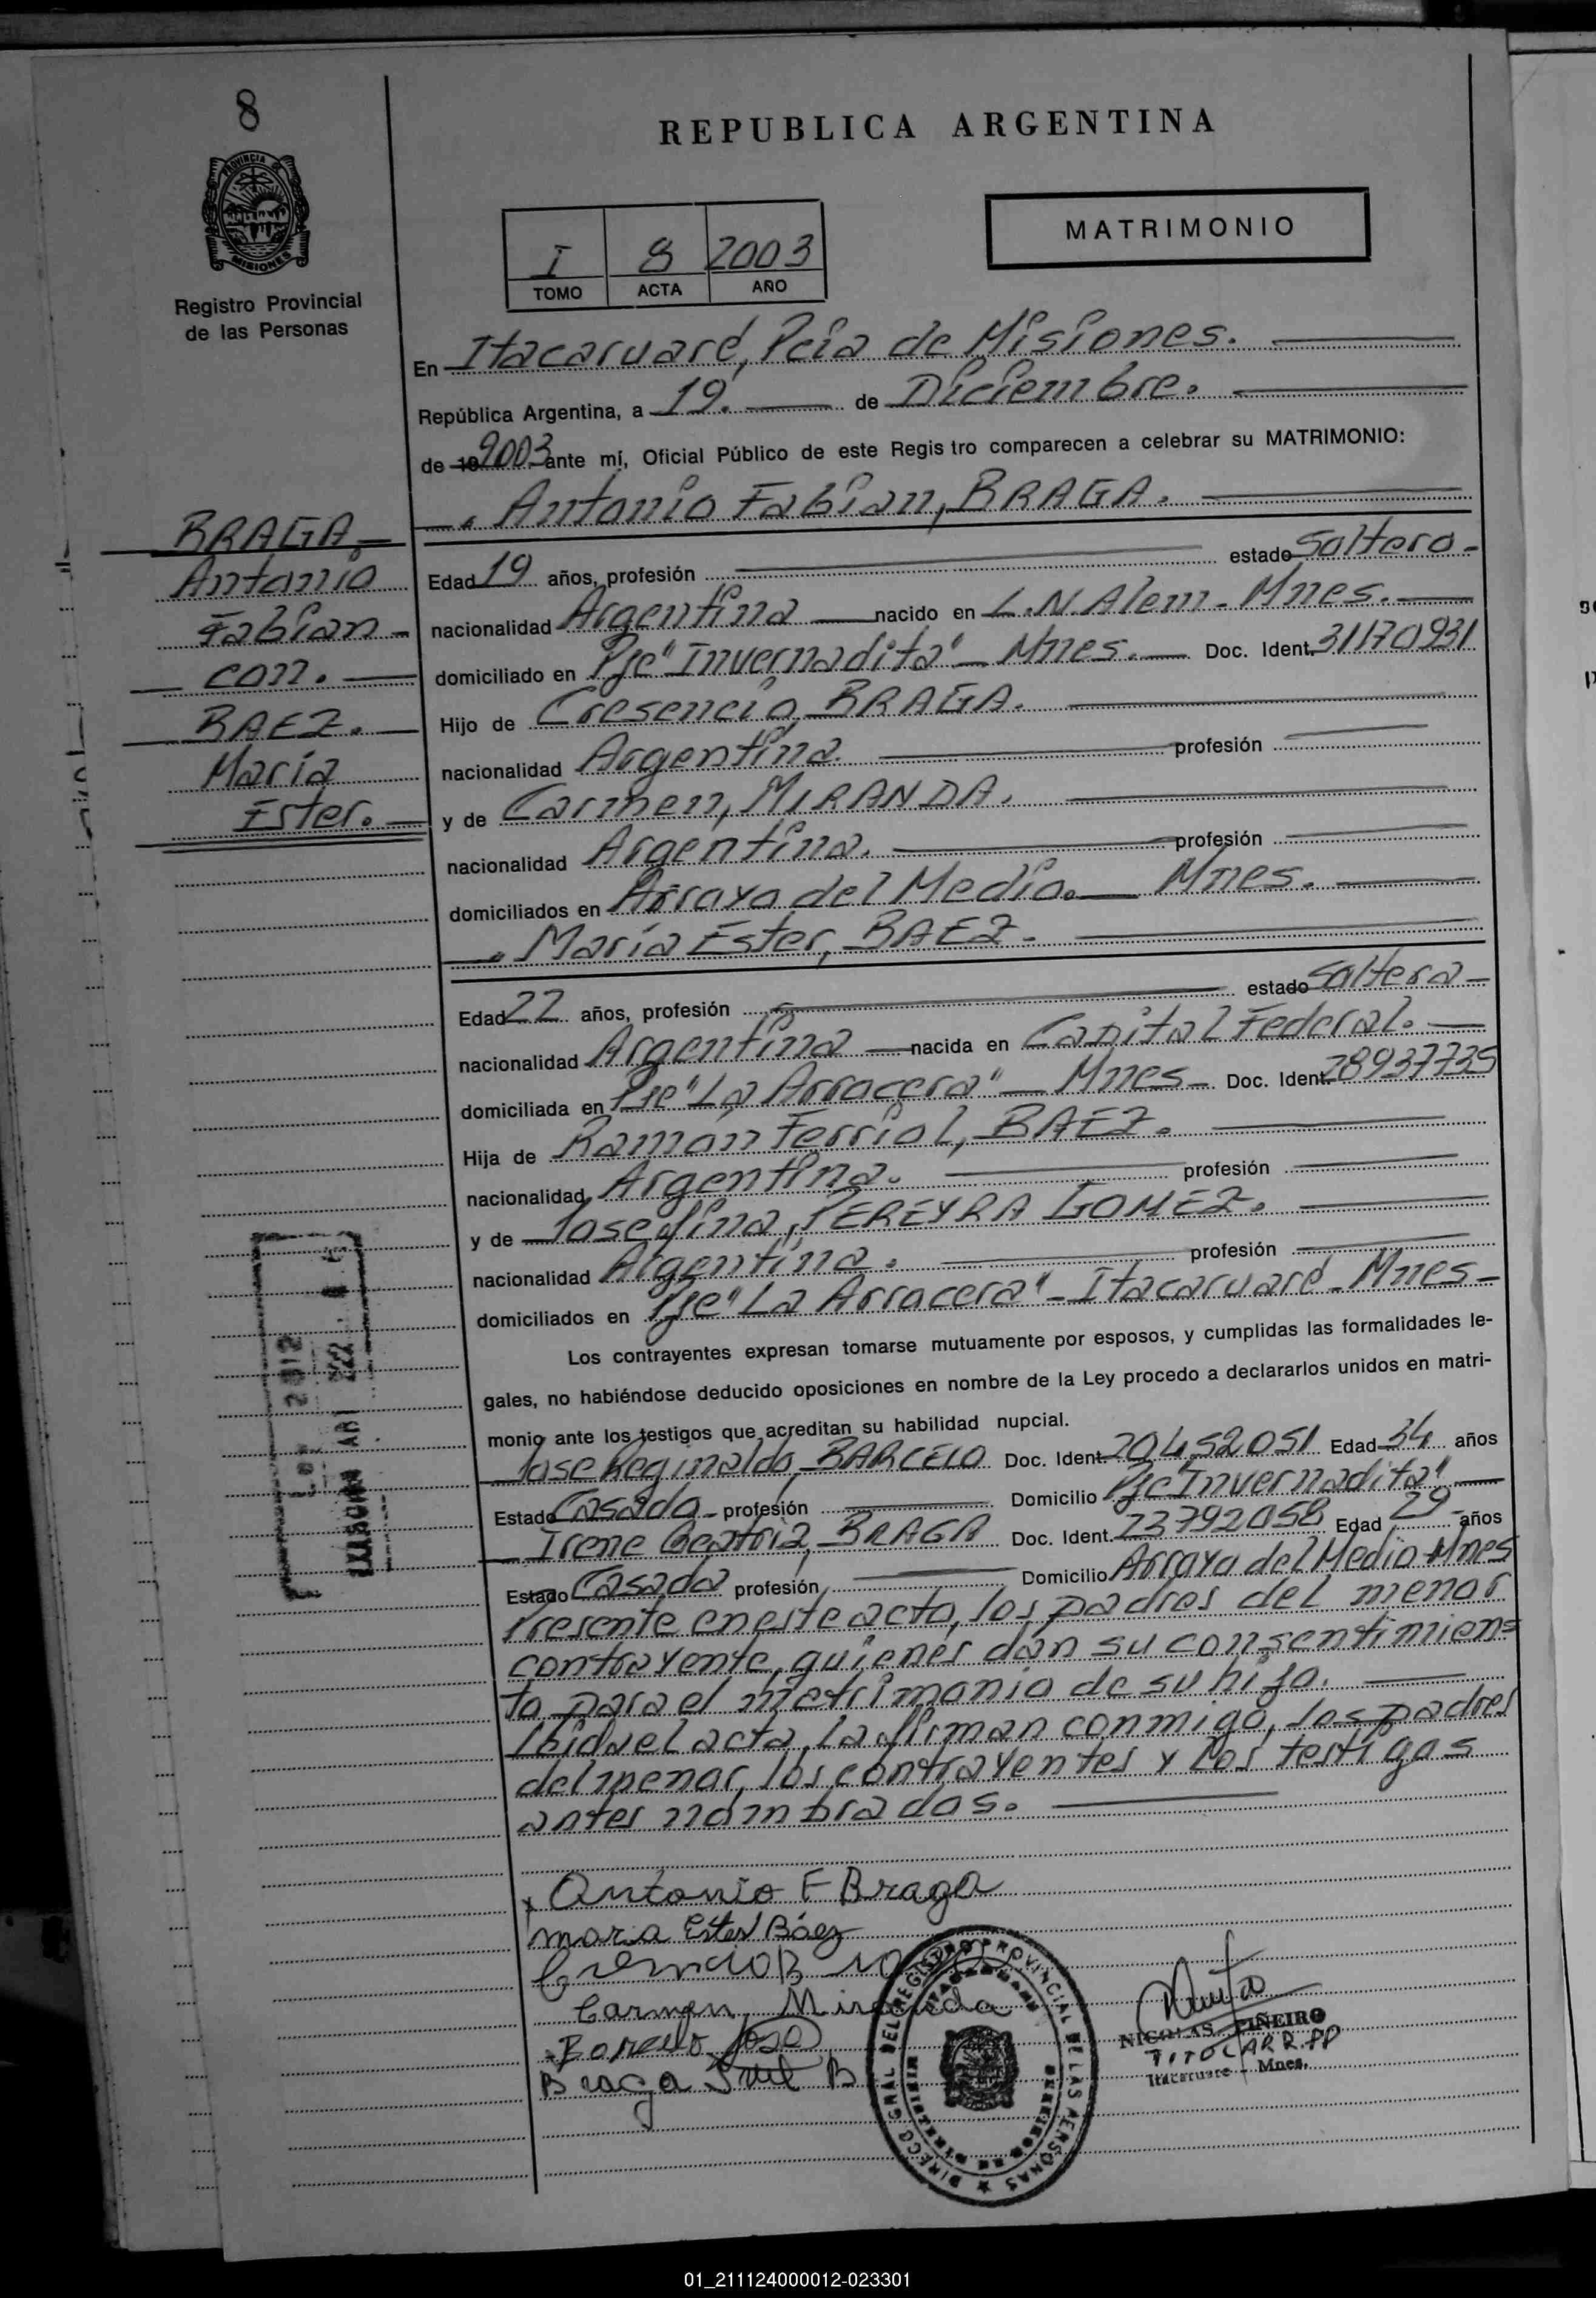 8
PROVINCIA DE
MISIONES
Registro Provincial
de las Personas
REPUBLICA ARGENTINA
MATRIMONIO
I 8 2003
TOMO ACTA AÑO
En Itacaruaré, Pcia de Misiones.
República Argentina, a 19. de Diciembre.
de 19 2003 ante mí, Oficial Público de este Regis tro comparecen a celebrar su MATRIMONIO:
Antonio Fabian, BRAGA.
BRAGA
Antonio
Fabian
con.
BAEZ.
María
Ester.
Edad 19 años, profesión estado Soltero
nacionalidad Argentina nacido en L.N Alem - Mnes.
domiciliado en Pje "Invernadita" - Mnes. Doc. Ident. 31170931
Hijo de Cresencio, BRAGA.
nacionalidad Argentina. profesión
y de Carmen, MIRANDA.
nacionalidad Argentina. profesión
domiciliados en Arroyo del Medio. Mnes.
María Ester, BAEZ.
Edad 22 años, profesión estado Soltera
nacionalidad Argentina nacida en Capital Federal.
domiciliada en Pje "La Arrocera" - Mnes - Doc. Ident. 28937735
Hija de Ramón Ferriol, BAEZ.
nacionalidad Argentina. profesión
y de Josefina, PEREYRA GOMEZ.
nacionalidad Argentina. profesión
domiciliados en Pje "La Arrocera" - Itacaruaré - Mnes -
Los contrayentes expresan tomarse mutuamente por esposos, y cumplidas las formalidades le-
gales, no habiéndose deducido oposiciones en nombre de la Ley procedo a declararlos unidos en matri-
monio ante los testigos que acreditan su habilidad nupcial.
Jose Reginaldo, BARCELO Doc. Ident. 20452051 Edad 34 años
Estado Casado - profesión Domicilio Pje "Invernadita"
Irene Beatriz, BRAGA Doc. Ident. 23792058 Edad 29 años
Estado Casada profesión Domicilio Arroyo del Medio Mnes
Presente en este acto, los padres del menor
contrayente, quienes dan su consentimien=
to para el matrimonio de su hijo.
Leida el acta, la firman conmigo, los padres
del menor, los contrayentes y los testigos
antes nombrados.
Antonio F Braga
maria Ester Báez
Carmen Miranda
Braga B
NICOLAS PIÑEIRO
Itacaruare - Mnes.
DIRECC GRAL DEL REGISTRO PROVINCIAL DE LAS PERSONAS
2012
01_211124000012-023301